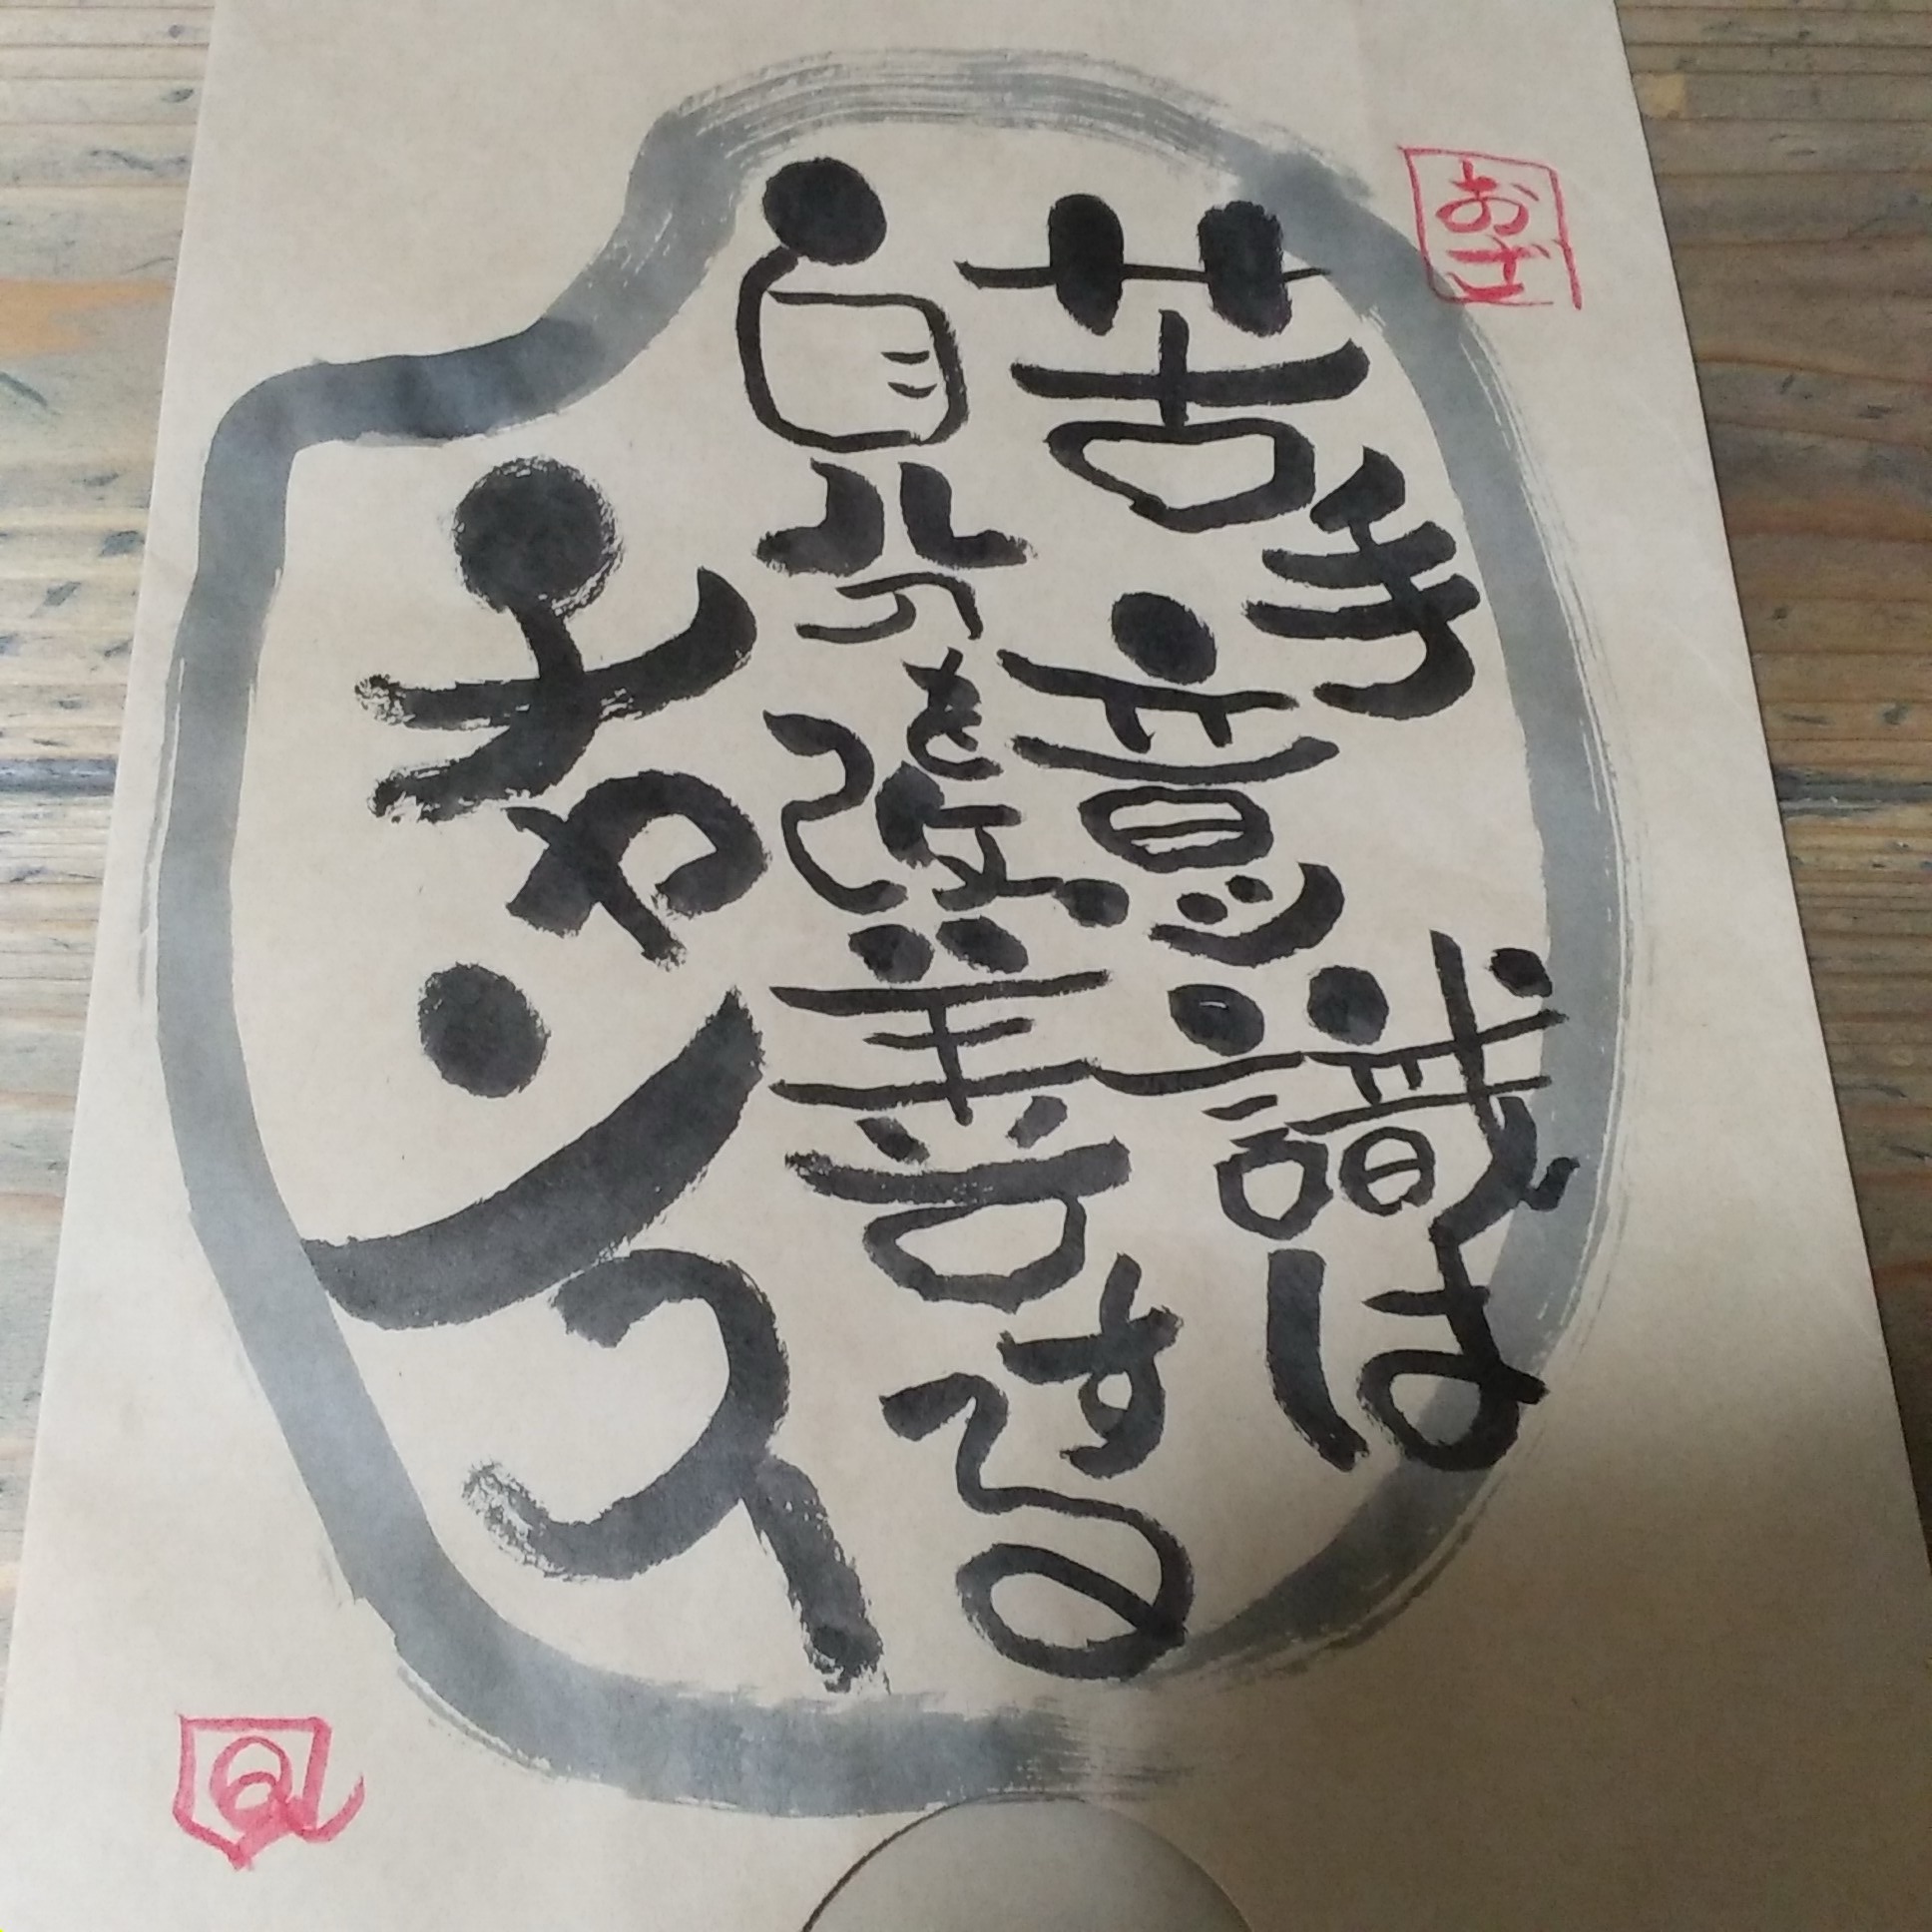 苦手意識は
自分を改善する
チャンス
おざ